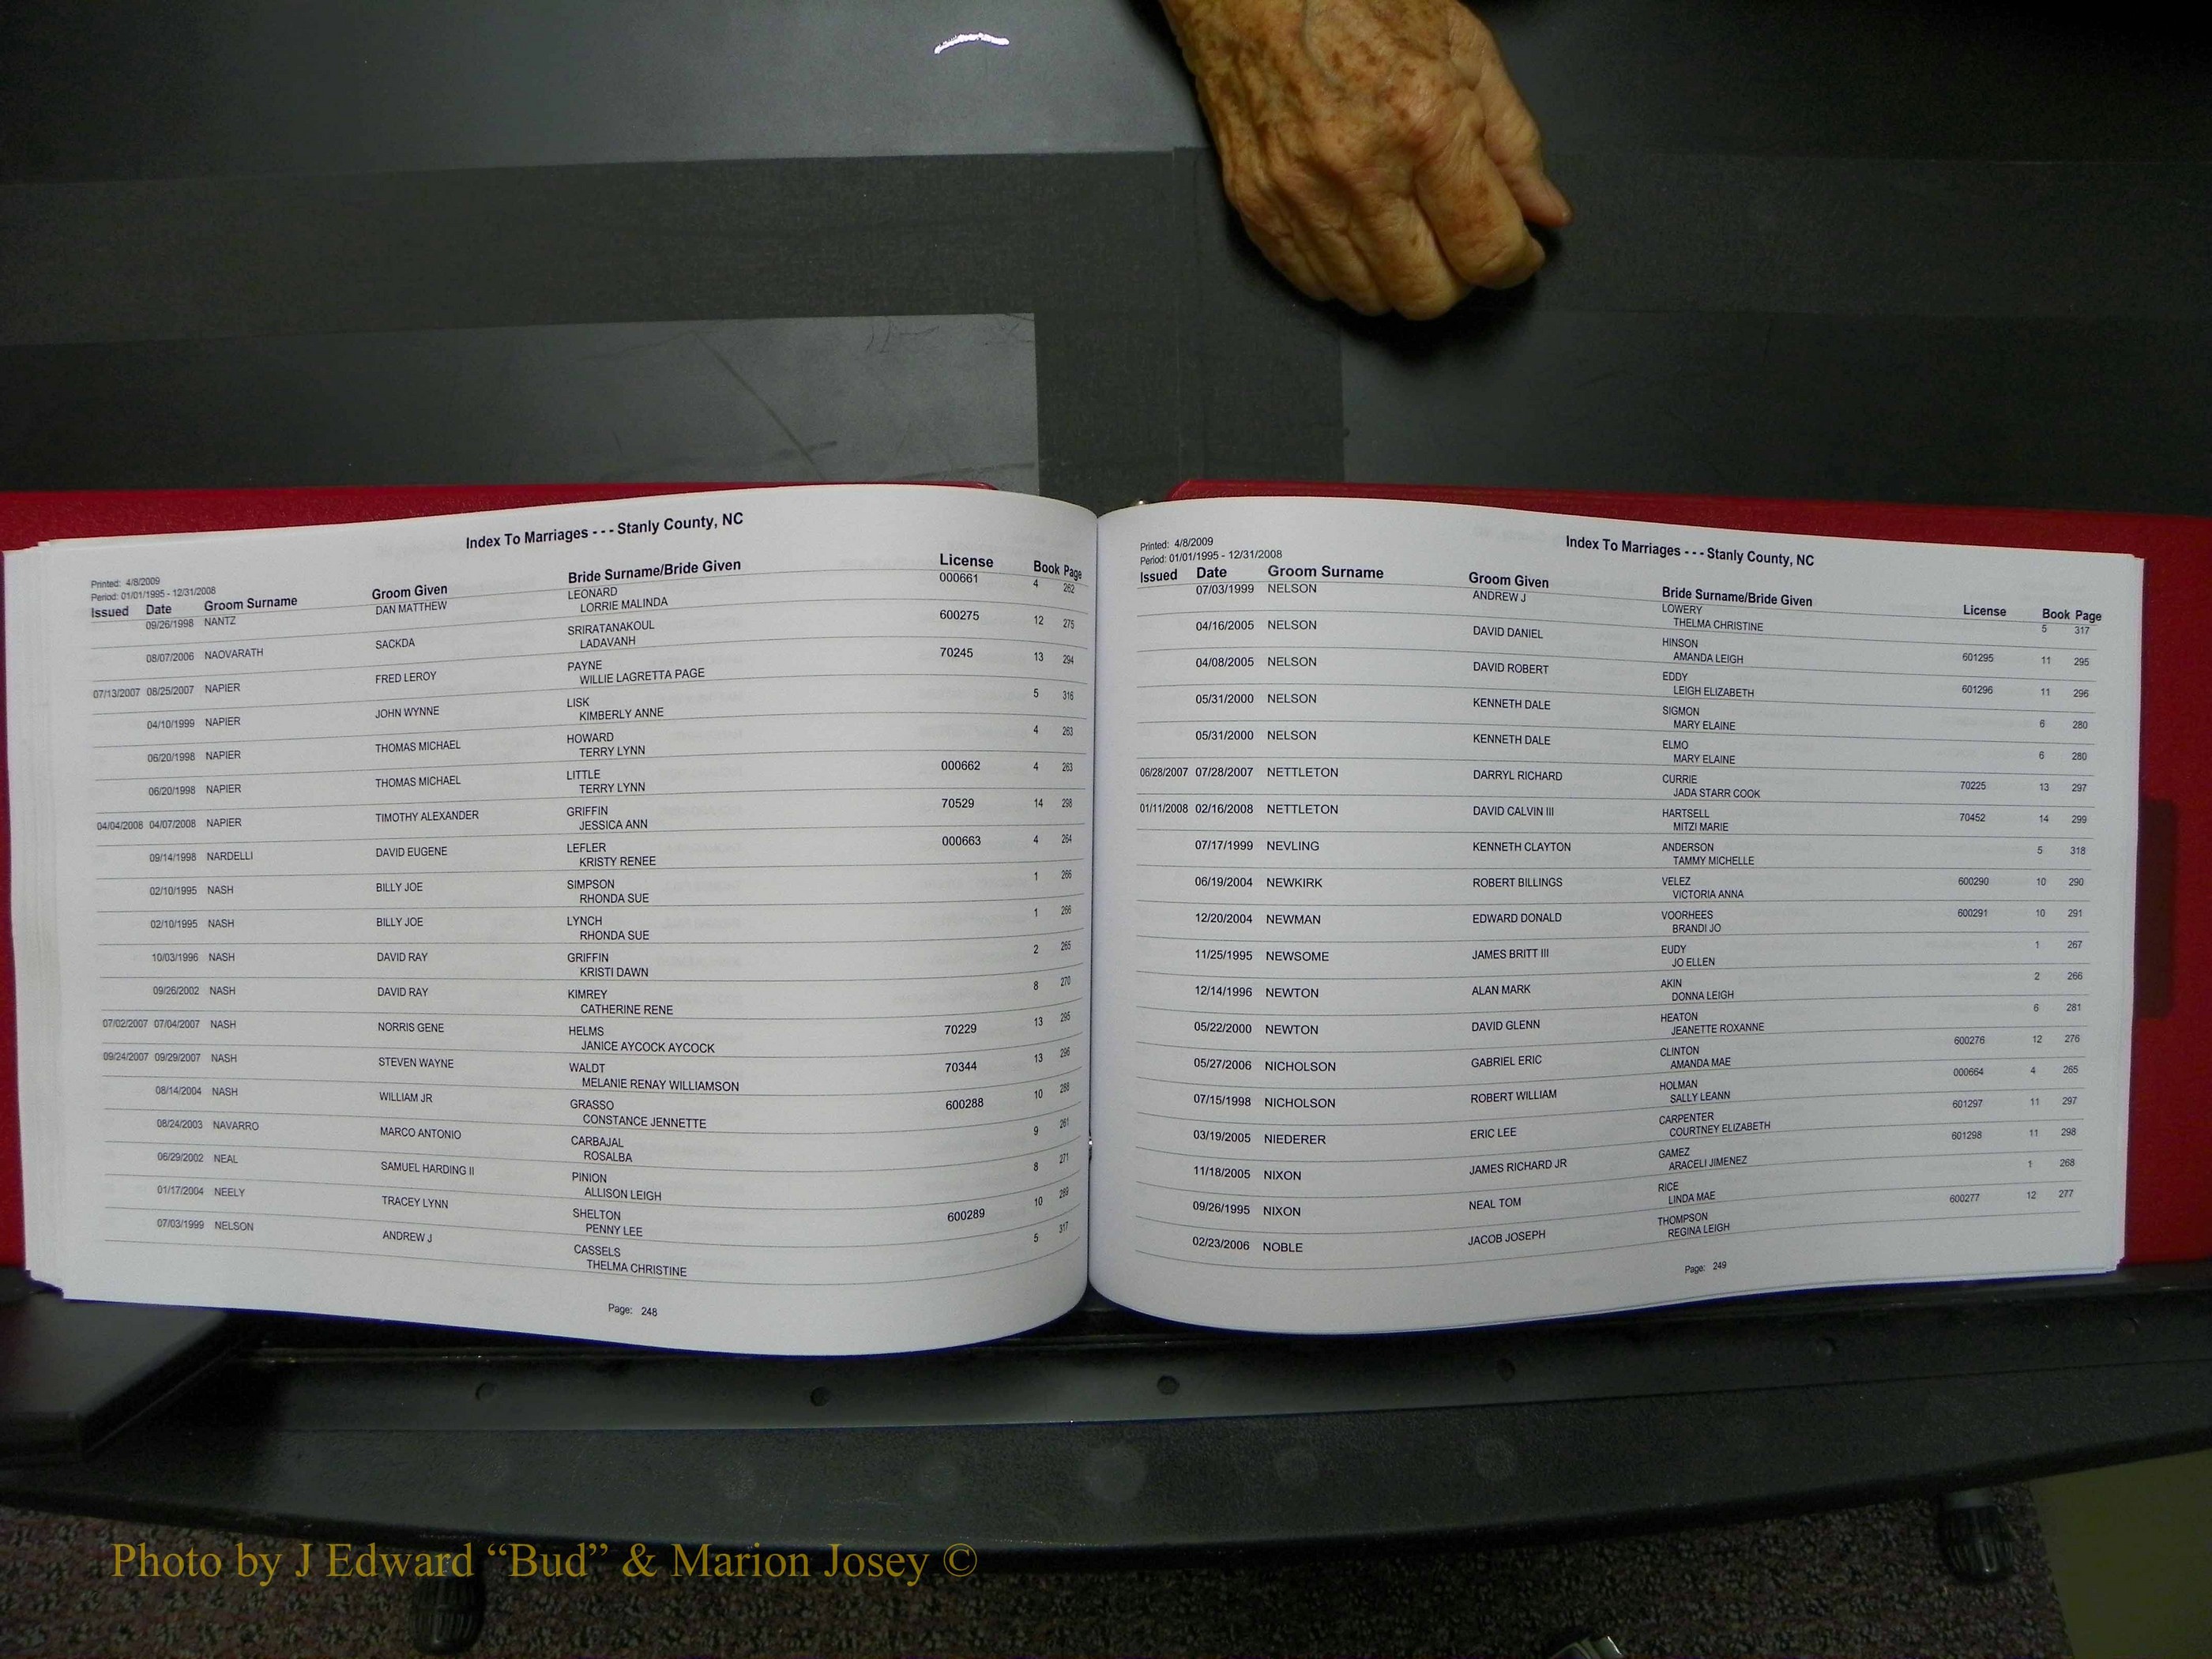 Index To Marriages - - - Stanly County, NC
Printed: 4/8/2009
Period: 01/01/1995 - 12/31/2008
Issued Date Groom Surname Groom Given Bride Surname/Bride Given License Book Page
09/26/1998 NANTZ DAN MATTHEW LEONARD 000661 4 262
LORRIE MALINDA
08/07/2006 NAOVARATH SACKDA SRIRATANAKOUL 600275 12 275
LADAVANH
07/13/2007 08/25/2007 NAPIER FRED LEROY PAYNE 70245 13 294
WILLIE LAGRETTA PAGE
04/10/1999 NAPIER JOHN WYNNE LISK 5 316
KIMBERLY ANNE
06/20/1998 NAPIER THOMAS MICHAEL HOWARD 4 263
TERRY LYNN
06/20/1998 NAPIER THOMAS MICHAEL LITTLE 000662 4 263
TERRY LYNN
04/04/2008 04/07/2008 NAPIER TIMOTHY ALEXANDER GRIFFIN 70529 14 298
JESSICA ANN
09/14/1998 NARDELLI DAVID EUGENE LEFLER 000663 4 264
KRISTY RENEE
02/10/1995 NASH BILLY JOE SIMPSON 1 266
RHONDA SUE
02/10/1995 NASH BILLY JOE LYNCH 1 266
RHONDA SUE
10/03/1996 NASH DAVID RAY GRIFFIN 2 265
KRISTI DAWN
09/26/2002 NASH DAVID RAY KIMREY 8 270
CATHERINE RENE
07/02/2007 07/04/2007 NASH NORRIS GENE HELMS 70229 13 295
JANICE AYCOCK AYCOCK
09/24/2007 09/29/2007 NASH STEVEN WAYNE WALDT 70344 13 296
MELANIE RENAY WILLIAMSON
08/14/2004 NASH WILLIAM JR GRASSO 600288 10 288
CONSTANCE JENNETTE
08/24/2003 NAVARRO MARCO ANTONIO CARBAJAL 9 261
ROSALBA
06/29/2002 NEAL SAMUEL HARDING II PINION 8 271
ALLISON LEIGH
01/17/2004 NEELY TRACEY LYNN SHELTON 600289 10 289
PENNY LEE
07/03/1999 NELSON ANDREW J CASSELS 5 317
THELMA CHRISTINE
Page: 248
Index To Marriages - - - Stanly County, NC
Printed: 4/8/2009
Period: 01/01/1995 - 12/31/2008
Issued Date Groom Surname Groom Given Bride Surname/Bride Given License Book Page
07/03/1999 NELSON ANDREW J LOWERY 5 317
THELMA CHRISTINE
04/16/2005 NELSON DAVID DANIEL HINSON 601295 11 295
AMANDA LEIGH
04/08/2005 NELSON DAVID ROBERT EDDY 601296 11 296
LEIGH ELIZABETH
05/31/2000 NELSON KENNETH DALE SIGMON 6 280
MARY ELAINE
05/31/2000 NELSON KENNETH DALE ELMO 6 280
MARY ELAINE
06/28/2007 07/28/2007 NETTLETON DARRYL RICHARD CURRIE 70225 13 297
JADA STARR COOK
01/11/2008 02/16/2008 NETTLETON DAVID CALVIN III HARTSELL 70452 14 299
MITZI MARIE
07/17/1999 NEVLING KENNETH CLAYTON ANDERSON 5 318
TAMMY MICHELLE
06/19/2004 NEWKIRK ROBERT BILLINGS VELEZ 600290 10 290
VICTORIA ANNA
12/20/2004 NEWMAN EDWARD DONALD VOORHEES 600291 10 291
BRANDI JO
11/25/1995 NEWSOME JAMES BRITT III EUDY 1 267
JO ELLEN
12/14/1996 NEWTON ALAN MARK AKIN 2 266
DONNA LEIGH
05/22/2000 NEWTON DAVID GLENN HEATON 6 281
JEANETTE ROXANNE
05/27/2006 NICHOLSON GABRIEL ERIC CLINTON 600276 12 276
AMANDA MAE
07/15/1998 NICHOLSON ROBERT WILLIAM HOLMAN 000664 4 265
SALLY LEANN
03/19/2005 NIEDERER ERIC LEE CARPENTER 601297 11 297
COURTNEY ELIZABETH
11/18/2005 NIXON JAMES RICHARD JR GAMEZ 601298 11 298
ARACELI JIMENEZ
09/26/1995 NIXON NEAL TOM RICE 1 268
LINDA MAE
02/23/2006 NOBLE JACOB JOSEPH THOMPSON 600277 12 277
REGINA LEIGH
Page: 249
Photo by J Edward “Bud” & Marion Josey ©